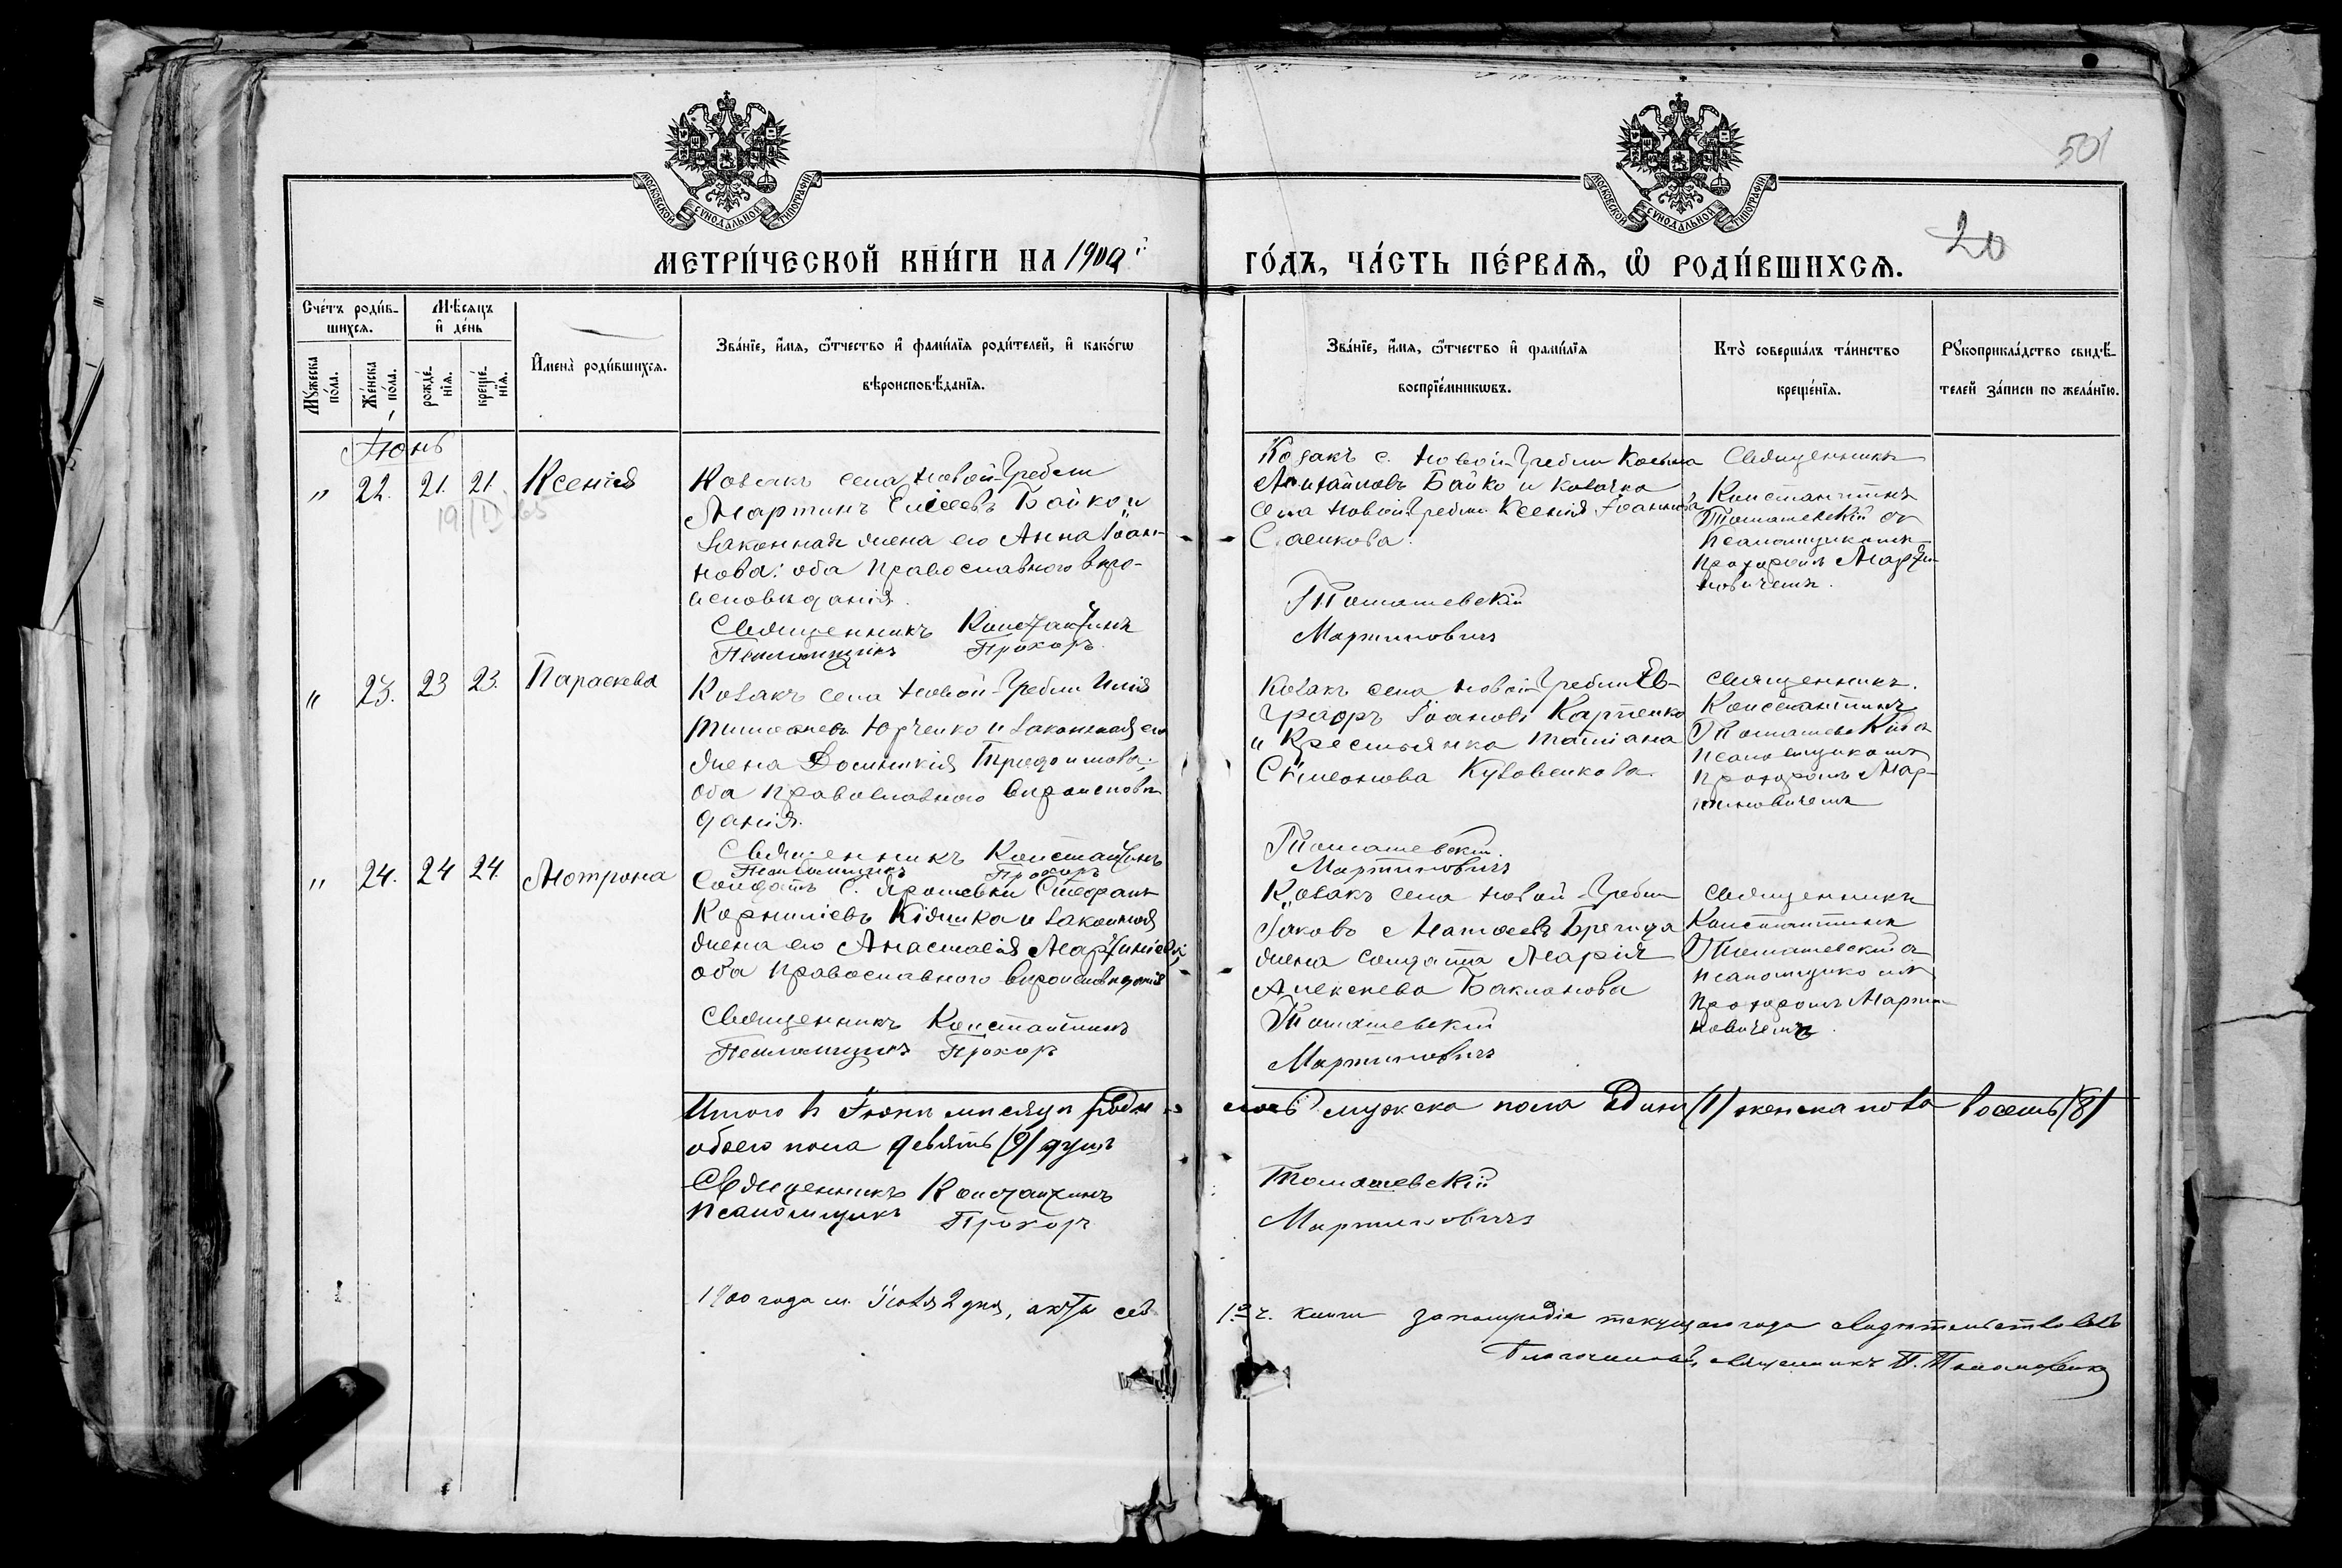 501
20
МОСКОВСКОЙ СѴНОДАЛЬНОЙ ТИПОГРАФІИ
МОСКОВСКОЙ СѴНОДАЛЬНОЙ ТИПОГРАФІИ
МЕТРИ́ЧЕСКОЙ КНИ́ГИ НА 1900й
ГО́ДЪ, ЧА́СТЬ ПЕ́РВАѦ, Ѡ҆ РОДИ́ВШИХСѦ.
Сче́тъ роди́в-
шихсѧ.
Мꙋ́жеска по́ла.
Же́нска по́ла.
Мѣ́сѧцъ
и҆ де́нь
рожде́-
нїѧ.
креще́-
нїѧ.
И҆мена̀ роди́вшихсѧ.
Зва́нїе, и҆́мѧ, ѻ҆́тчество и҆ фами́лїѧ роди́телей, и҆ како́гѡ
вѣроисповѣ́данїѧ.
Зва́нїе, и҆́мѧ, ѻ҆́тчество и҆ фами́лїѧ
воспрїе́мникѡвъ.
Кто̀ соверша́лъ та́инство
креще́нїѧ.
Рꙋкоприкла́дство свидѣ́-
телей за́писи по жела́нїю.
Іюнь
" 22. 21. 21. Ксенія
Козакъ села Новой-Гребли
Мартинъ Елисеевъ Байко и
законная жена его Анна Іоан-
нова: оба православнаго вѣро-
исповѣданія.
Священникъ Константинъ
Псаломщикъ Прохоръ
Козакъ с. Новой-Гребли Косьма
Байко и козачка
села Новой Гребли Ксенія Іоаннова
Саенкова.
Томашевскій
Мартиновичъ
Священникъ
Константинъ
Томашевскій съ
Псаломщикомъ
Прохоромъ Марти-
новичемъ.
" 23. 23 23. Параскева
Козакъ села Новой-Гребли Илія
Тимофеевъ Юрченко и законная его
жена Домникія Трифонова:
оба православнаго вѣроисповѣ
данія.
Священникъ Константинъ
Псаломщикъ Прохоръ
Козакъ села Новой Гребли Ев-
графъ Іоановъ Карпенко
и Крестьянка Татіана
Симеонова
Томашевскій.
Мартиновичъ
Священникъ.
Константинъ
Томашевскій съ
псаломщикомъ
Прохоромъ Мар-
тиновичемъ
" 24. 24 24. Мотрона
Солдатъ С. Ярошевки Стефанъ
Корниліевъ и законная
жена его Анастасія Мартиніева,
оба православнаго вѣроисповѣданія
Священникъ Константинъ
Псаломщикъ Прохоръ
Козакъ села Новой-Гребли
Іаковъ Матѳеевъ
жена солдата Марія
Алексѣева Бакланова
Томашевскій
Мартиновичъ
Священникъ
Константинъ
Томашевскій съ
псаломщикомъ
Прохоромъ Марти-
новичемъ.
Итого въ Іюнѣ мѣсяцѣ роди лось мужеска пола Единъ (1) женска пола восемь (8)
обоего пола девять (9) душъ
Священникъ Константинъ Томашевскій
Псаломщикъ Прохоръ Мартиновичъ
1900 года м. Іюля 2 дня, акты сей 1й ч. книги за полугодіе текущаго года свидѣтельствовалъ
Благочинный, священникъ П.